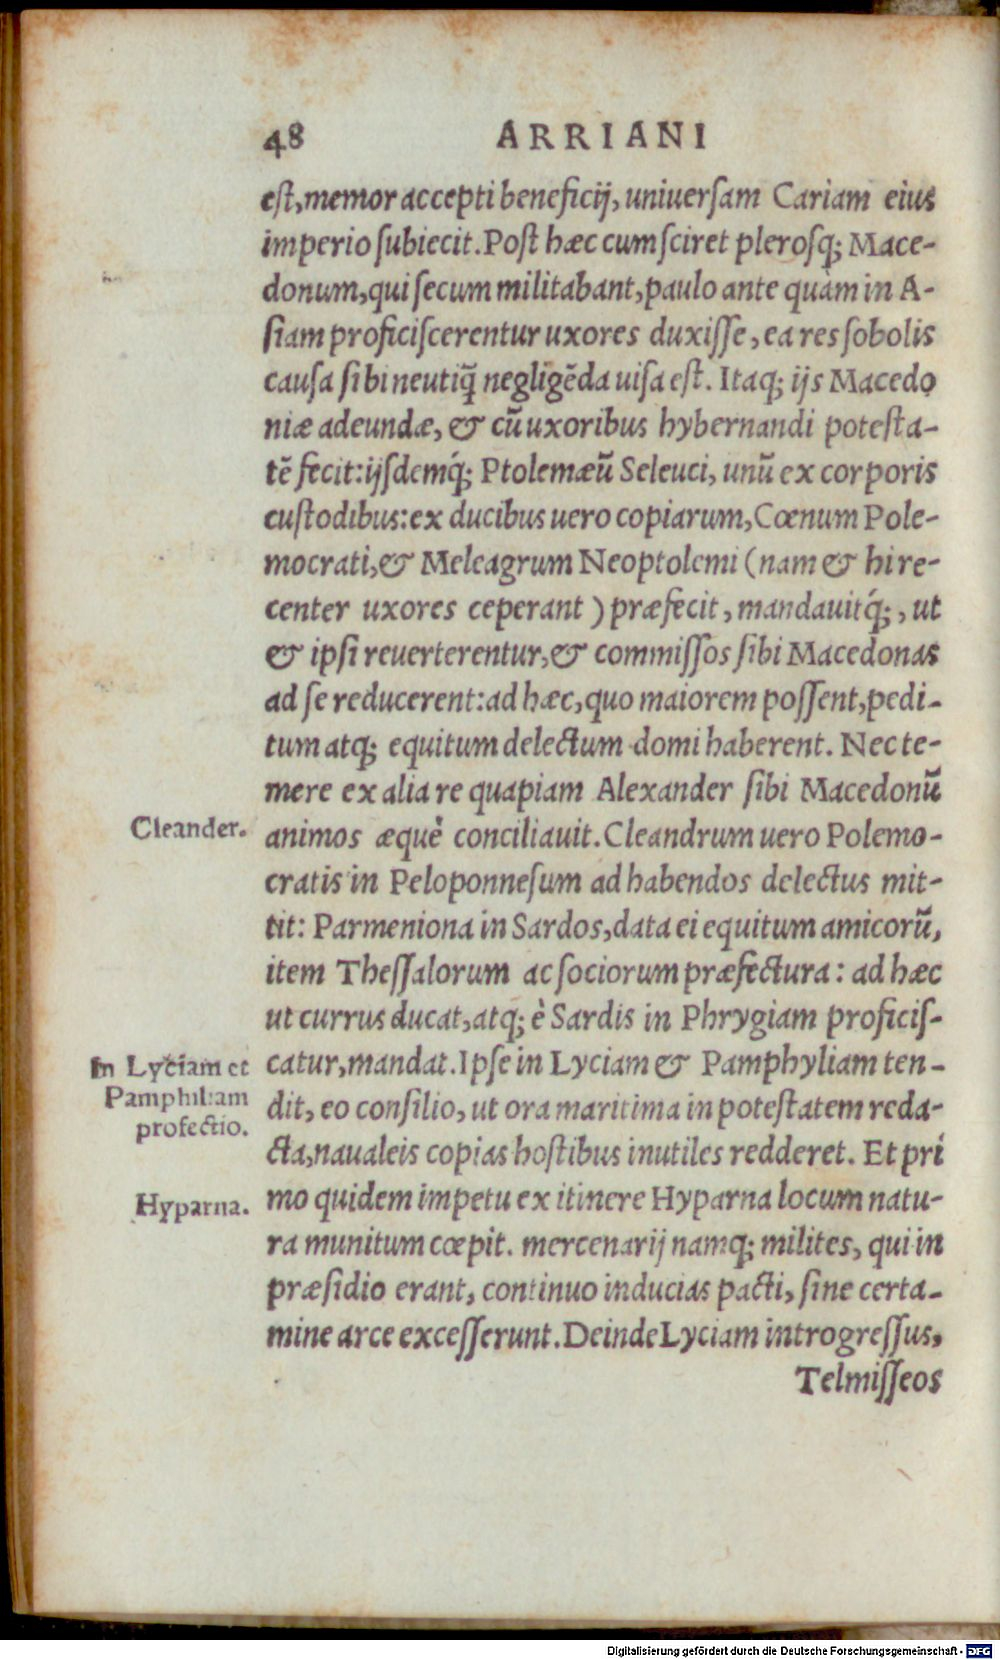 48 ARRIANI
est, memor accepti beneficij, uniuersam Cariam eius
imperio subiecit. Post hæc cum sciret plerosq; Mace-
donum, qui secum militabant, paulo ante quàm in A-
siam proficiscerentur uxores duxisse, ea res sobolis
causa sibi neutiq̃ negligẽda uisa est. Itaq; ijs Macedo
niæ adeundæ, & cũ uxoribus hybernandi potesta-
tẽ fecit: ijsdemq́; Ptolemæũ Seleuci, unũ ex corporis
custodibus: ex ducibus uero copiarum, Cœnum Pole-
mocrati, & Meleagrum Neoptolemi (nam & hi re-
center uxores ceperant) præfecit, mandauitq́;, ut
& ipsi reuerterentur, & commissos sibi Macedonas
ad se reducerent: ad hæc, quo maiorem possent, pedi-
tum atq; equitum delectum domi haberent. Nec te-
mere ex alia re quapiam Alexander sibi Macedonũ
Cleander.
animos æquè conciliauit. Cleandrum uero Polemo-
cratis in Peloponnesum ad habendos delectus mit-
tit: Parmeniona in Sardos, data ei equitum amicorũ,
item Thessalorum ac sociorum præfectura: ad hæc
ut currus ducat, atq; è Sardis in Phrygiam proficis-
In Lyciam et
Pamphiliam
profectio.
catur, mandat. Ipse in Lyciam & Pamphyliam ten-
dit, eo consilio, ut ora maritima in potestatem reda-
cta, naualeis copias hostibus inutiles redderet. Et pri
Hyparna.
mo quidem impetu ex itinere Hyparna locum natu-
ra munitum cœpit. mercenarij namq; milites, qui in
præsidio erant, continuo inducias pacti, sine certa-
mine arce excesserunt. Deinde Lyciam introgressus,
Telmisseos
Digitalisierung gefördert durch die Deutsche Forschungsgemeinschaft - DFG